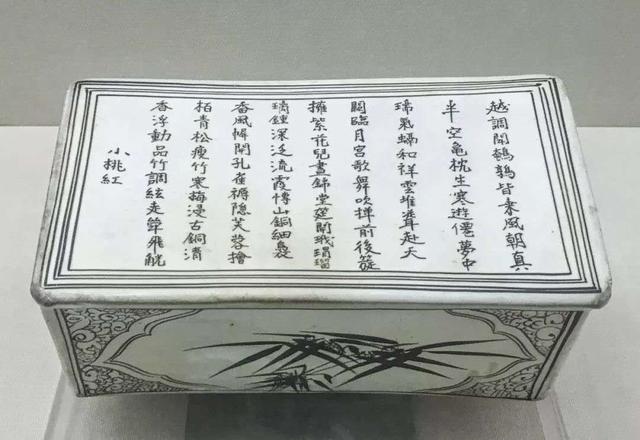 越調閗鵪鶉皆乘風朝真
半空龜枕生寒遊僊夢中
瑞氣和祥雲堆聳赴天
闕臨月宮歌舞吹前後簇
擁紫花兒畫錦堂筵開玳瑁瑠
璃鍾深泛流霞博山銅細裊
香風幃開孔雀褥隐芙蓉檜
栢青松瘦竹寒梅浸古銅清
香浮動品竹調絃走斝飛觥
小桃紅